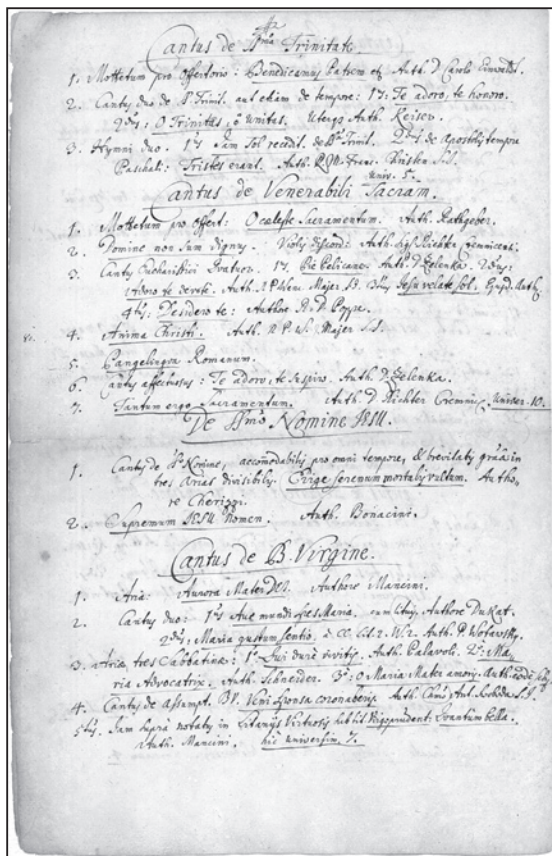 Cantus de SSma Trinitate
1. Mottetum pro Offertorio: Benedicamus Patrem etc. Auth. D. Carolo
2. Cantus duo de S. Trinit. aut etiam de tempore: 1us Te adoro, te honoro.
2dus: O Trinitas, ô unitas. Uterq Auth. Reiser.
3. Hymni duo. 1us Jam Sol recedit. de SS Trinit. 2dus de Apostolis tempore
Paschali: Tristes erant. Auth. Franc. Christen S.J.
univ. 5.
Cantus de Venerabili Sacram.
1. Mottetum pro Offert: O caeleste Sacramentum. Auth. Rathgeber.
2. Domine non sum dignus. Violis discord: Auth. Richter Cremnicens.
3. Cantus Eucharistici Quatuor. 1us Pie Pelicane. Auth. D. Zelenka. 2dus:
Adoro te devote. Auth. R.P. Wenc. Majer S.J. 3tius Jesu velate Sol. Ejusd. Auth.
4tus: Desidero te: Authore R.D. Poppe.
4. Anima Christi. Auth. R.P. Majer S.J.
5. Pangelingva Romanum.
6. Cantus affectuosus: Te adoro, te suspiro. Auth. D. Zelenka.
7. Tantum ergo Sacramentum. Auth. D. Richter Cremnic. Univer. 10.
De SSmo Nomine JESU.
1. Cantus de SS Nomine, accomodabilis pro omni tempore, & brevitatis gratia in
tres Arias divisibilis. Erige serenum mortalis vultum. Autho-
re Cherizzi.
2. Supremum JESU Nomen. Auth. Bonacini.
Cantus de B. Virgine.
1. Aria: Aurora Mater DEI. Authore Mancini.
2. Cantus duo: 1us Ave mundi spes Maria. cum Authore Dukat.
2dus: Maria gustum sentio. à CC. Lit. 2. W. 2. Auth. P. Wotawsky.
3. Ariae tres Sabbatinae: 1a Qui durè servitis. Auth. Palavoli. 2a: Ma-
ria Advocatrix. Auth. Schneider. 3a: O Maria Mater amoris. Auth. eodem
4. Cantus de Assumpt. BV. Veni Sponsa coronaberis. Auth. Ant. Swoboda S.J.
5tus. Jam supra notatus in Litanijs Virtuosis sub lit. Virgo prudent: Quantum bella.
Auth. Mancini. hic universim. 7.